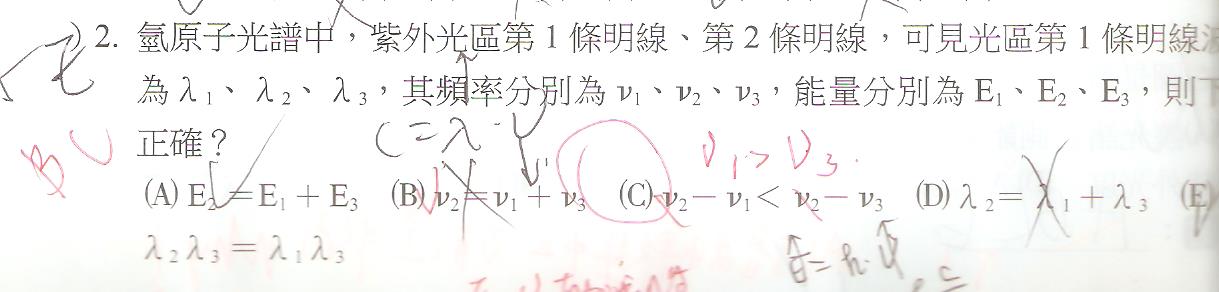 2. 氫原子光譜中，紫外光區第 1 條明線、第 2 條明線，可見光區第 1 條明線
為 λ₁、λ₂、λ₃，其頻率分別為 ν₁、ν₂、ν₃，能量分別為 E₁、E₂、E₃，則
正確？
C = λ · ν
B C
ν₁ > ν₃
(A) E₂ = E₁ + E₃ (B) ν₂ = ν₁ + ν₃ (C) ν₂ − ν₁ < ν₂ − ν₃ (D) λ₂ = λ₁ + λ₃ (E)
λ₂λ₃ = λ₁λ₃
E = h · ν